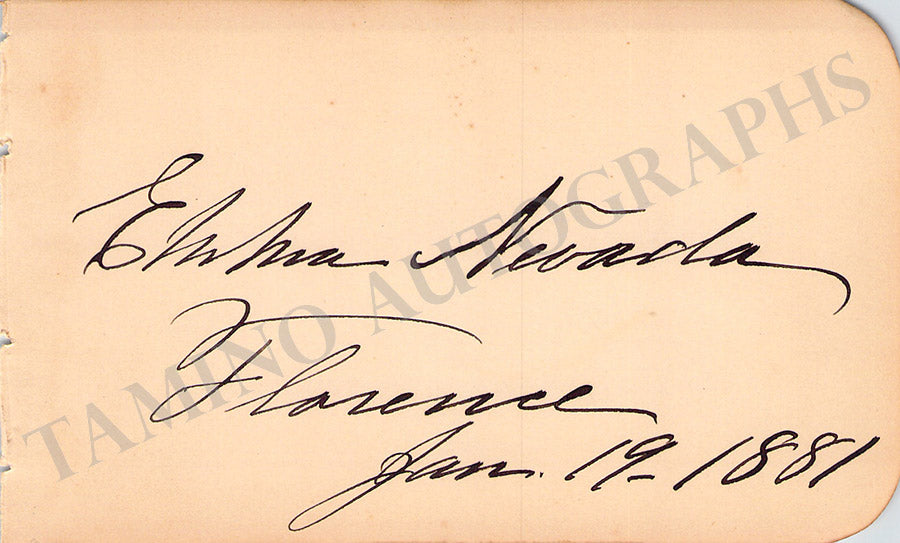 Emma Nevada
Florence
Jan. 19 - 1881
TAMINO AUTOGRAPHS